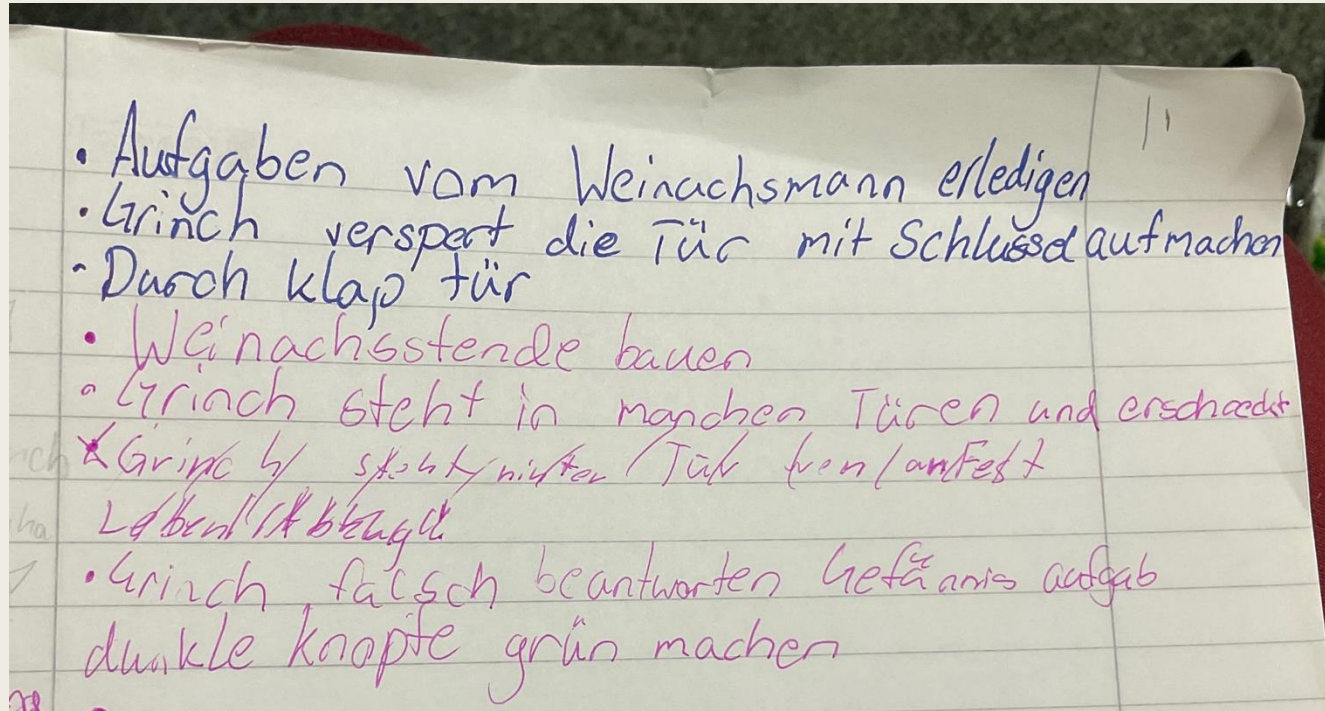 • Aufgaben vom Weinachsmann erledigen
• Grinch verspert die Tür mit Schlüssel aufmachen
• Durch klap tür
• Weinachsstende bauen
• Grinch steht in manchen Türen und erschreckt
Grinch steht Tür
• Grinch falsch beantworten Gefännis aufgab
dunkle knopfe grün machen